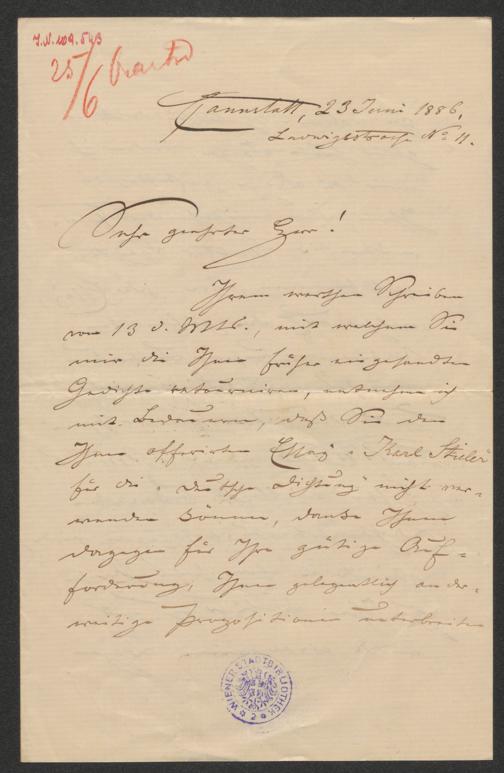 J.N. 109.543
25/6
Cannstatt, 23 Juni 1886,
Ludwigstrasse No 11.
Sehr geehrter Herr!
Ihrem werthen Schreiben
vom 13 d. Mts., mit welchem Sie
mir die Ihnen früher eingesandten
Gedichte retourniren, entnehme ich
mit Bedauern, daß Sie den
Ihnen offerirten Essay „Karl Stieler"
für die „Deutsche Dichtung" nicht ver-
wenden können, danke Ihnen
dagegen für Ihre gütige Auf-
forderung, Ihnen gelegentlich ander-
weitige Propositionen unterbreiten
WIENER STADTBIBLIOTHEK
2